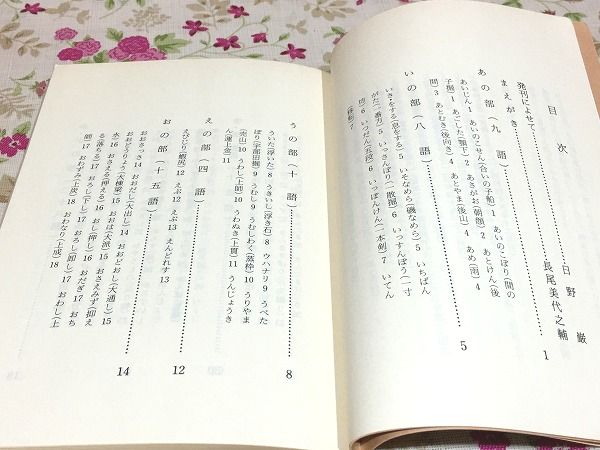 目次
発刊によせて……日野巌
まえがき……長尾美代之輔 1
あの部(九語)……1
あいじん1 あいのこせん(合いの子船)1 あいのこぼり(間の
子掘)1 あごした(顎下)2 あさがお(朝顔)2 あとけん(後
間)3 あとむき(後向き)4 あとやま(後山)4 あめ(雨)4
いの部(八語)……5
いきをする(息をする)5 いそなめら(磯なめら)5 いちばん
がた(一番方)5 いっさんぼり(一散掘)6 いっすんぼう(一寸
棒)6 いつせん(五銭)6 いっぽんけん(一本剣)7 いてん
(移転)7
うの部(十語)……8
ういた(浮いた)8 うきいし(浮き石)8 ウハナリ9 うべた
ぼり(宇部田掘)9 うむし9 うむしわく(蒸枠)9 うりやま
(売山)10 うわし(上師)10 うわぬき(上貫)11 うんじょうき
ん(運上金)11
えの部(四語)……12
えびじり(蝦尻)12 えぶ12 えぶ13 えんどれす13
おの部(十五語)……14
おおさっさ14 おおだし(大出し)14 おおどおし(大通し)
おおどうりょう(大棟梁)15 おおは(大派)15 おさえみず(抑え
水)16 おさえる(抑える)16 おし(押し)16 おだぎ17 おち
る(落ちる)17 おろし(下し)17 おろし(卸し)17 おわし(上
師)17 おわずみ(上炭)18 おわなり(上成)18